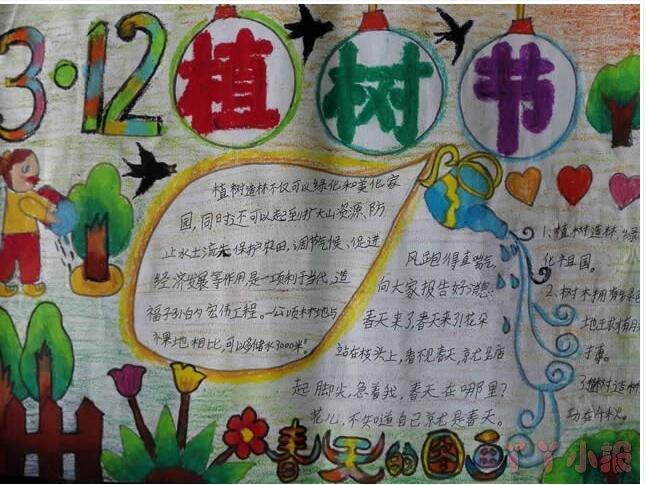 3·12植树节
植树造林不仅可以绿化和美化家
园,同时还可以起到扩大山资源、防
止水土流失保护农田,调节气候、促进
经济发展等作用,是一项利于当代、造
福子孙的宏伟工程。一公顷林地与
相比,可以多储水3000米³
风跑得直喘气,
向大家报告好消息:
春天来了,春天来了!花朵
站在枝头上,看不见春天,就
起脚尖,急着找,春天在哪里?
花儿,不知道自己就是春天。
1、植树造林绿
化祖国。
2、树木拥有绿色
地球
3植树造林
功在千秋。
春天的图画
丫丫小报